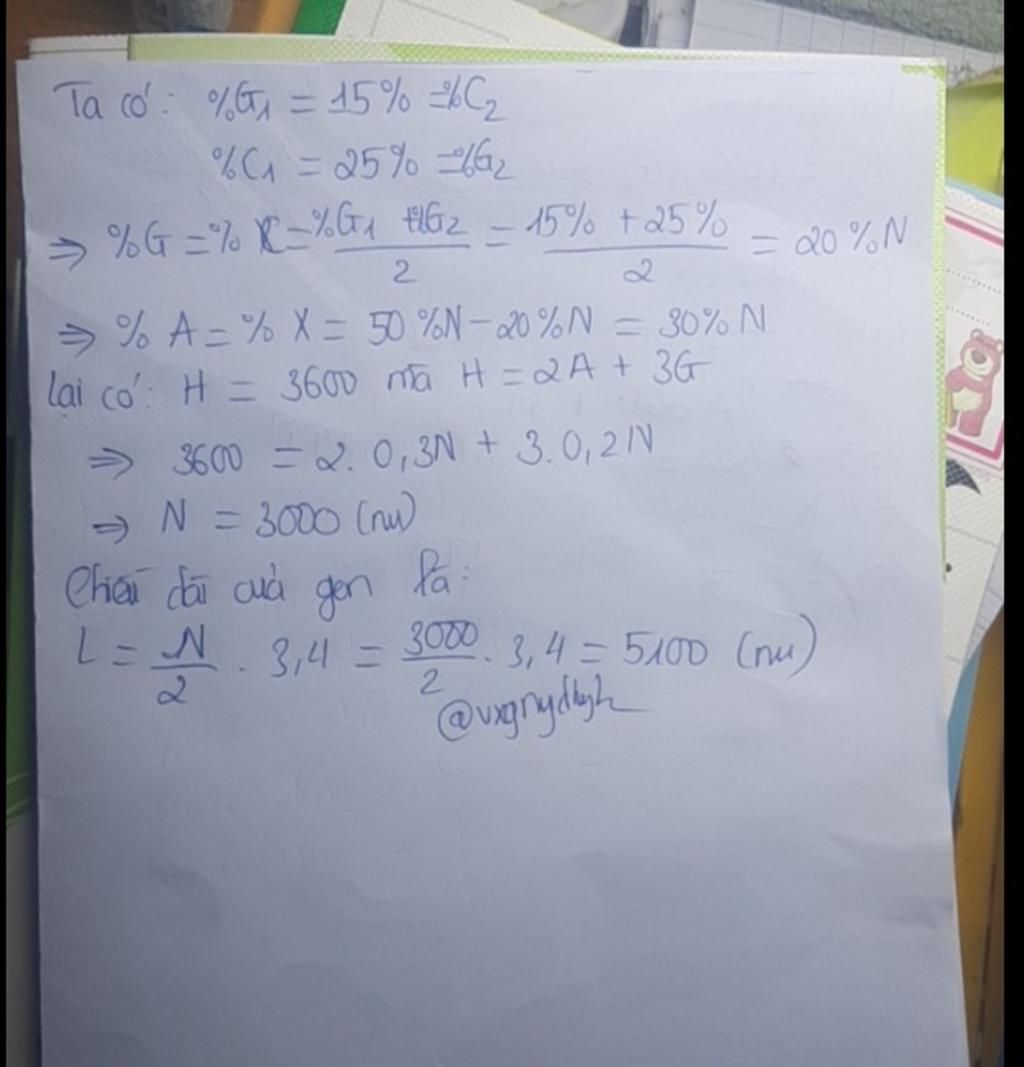 Ta có: %G1 = 15% = %C2
%C1 = 25% = %G2
⇒ %G = % C = %G1 + %G2 / 2 = 15% + 25% / 2 = 20 %N
⇒ % A = % X = 50 %N - 20 %N = 30% N
lại có: H = 3600 mà H = 2A + 3G
⇒ 3600 = 2. 0,3N + 3. 0,2N
⇒ N = 3000 (nu)
Chiều dài của gen là:
L = N / 2 . 3,4 = 3000 / 2 . 3,4 = 5100 (nu)